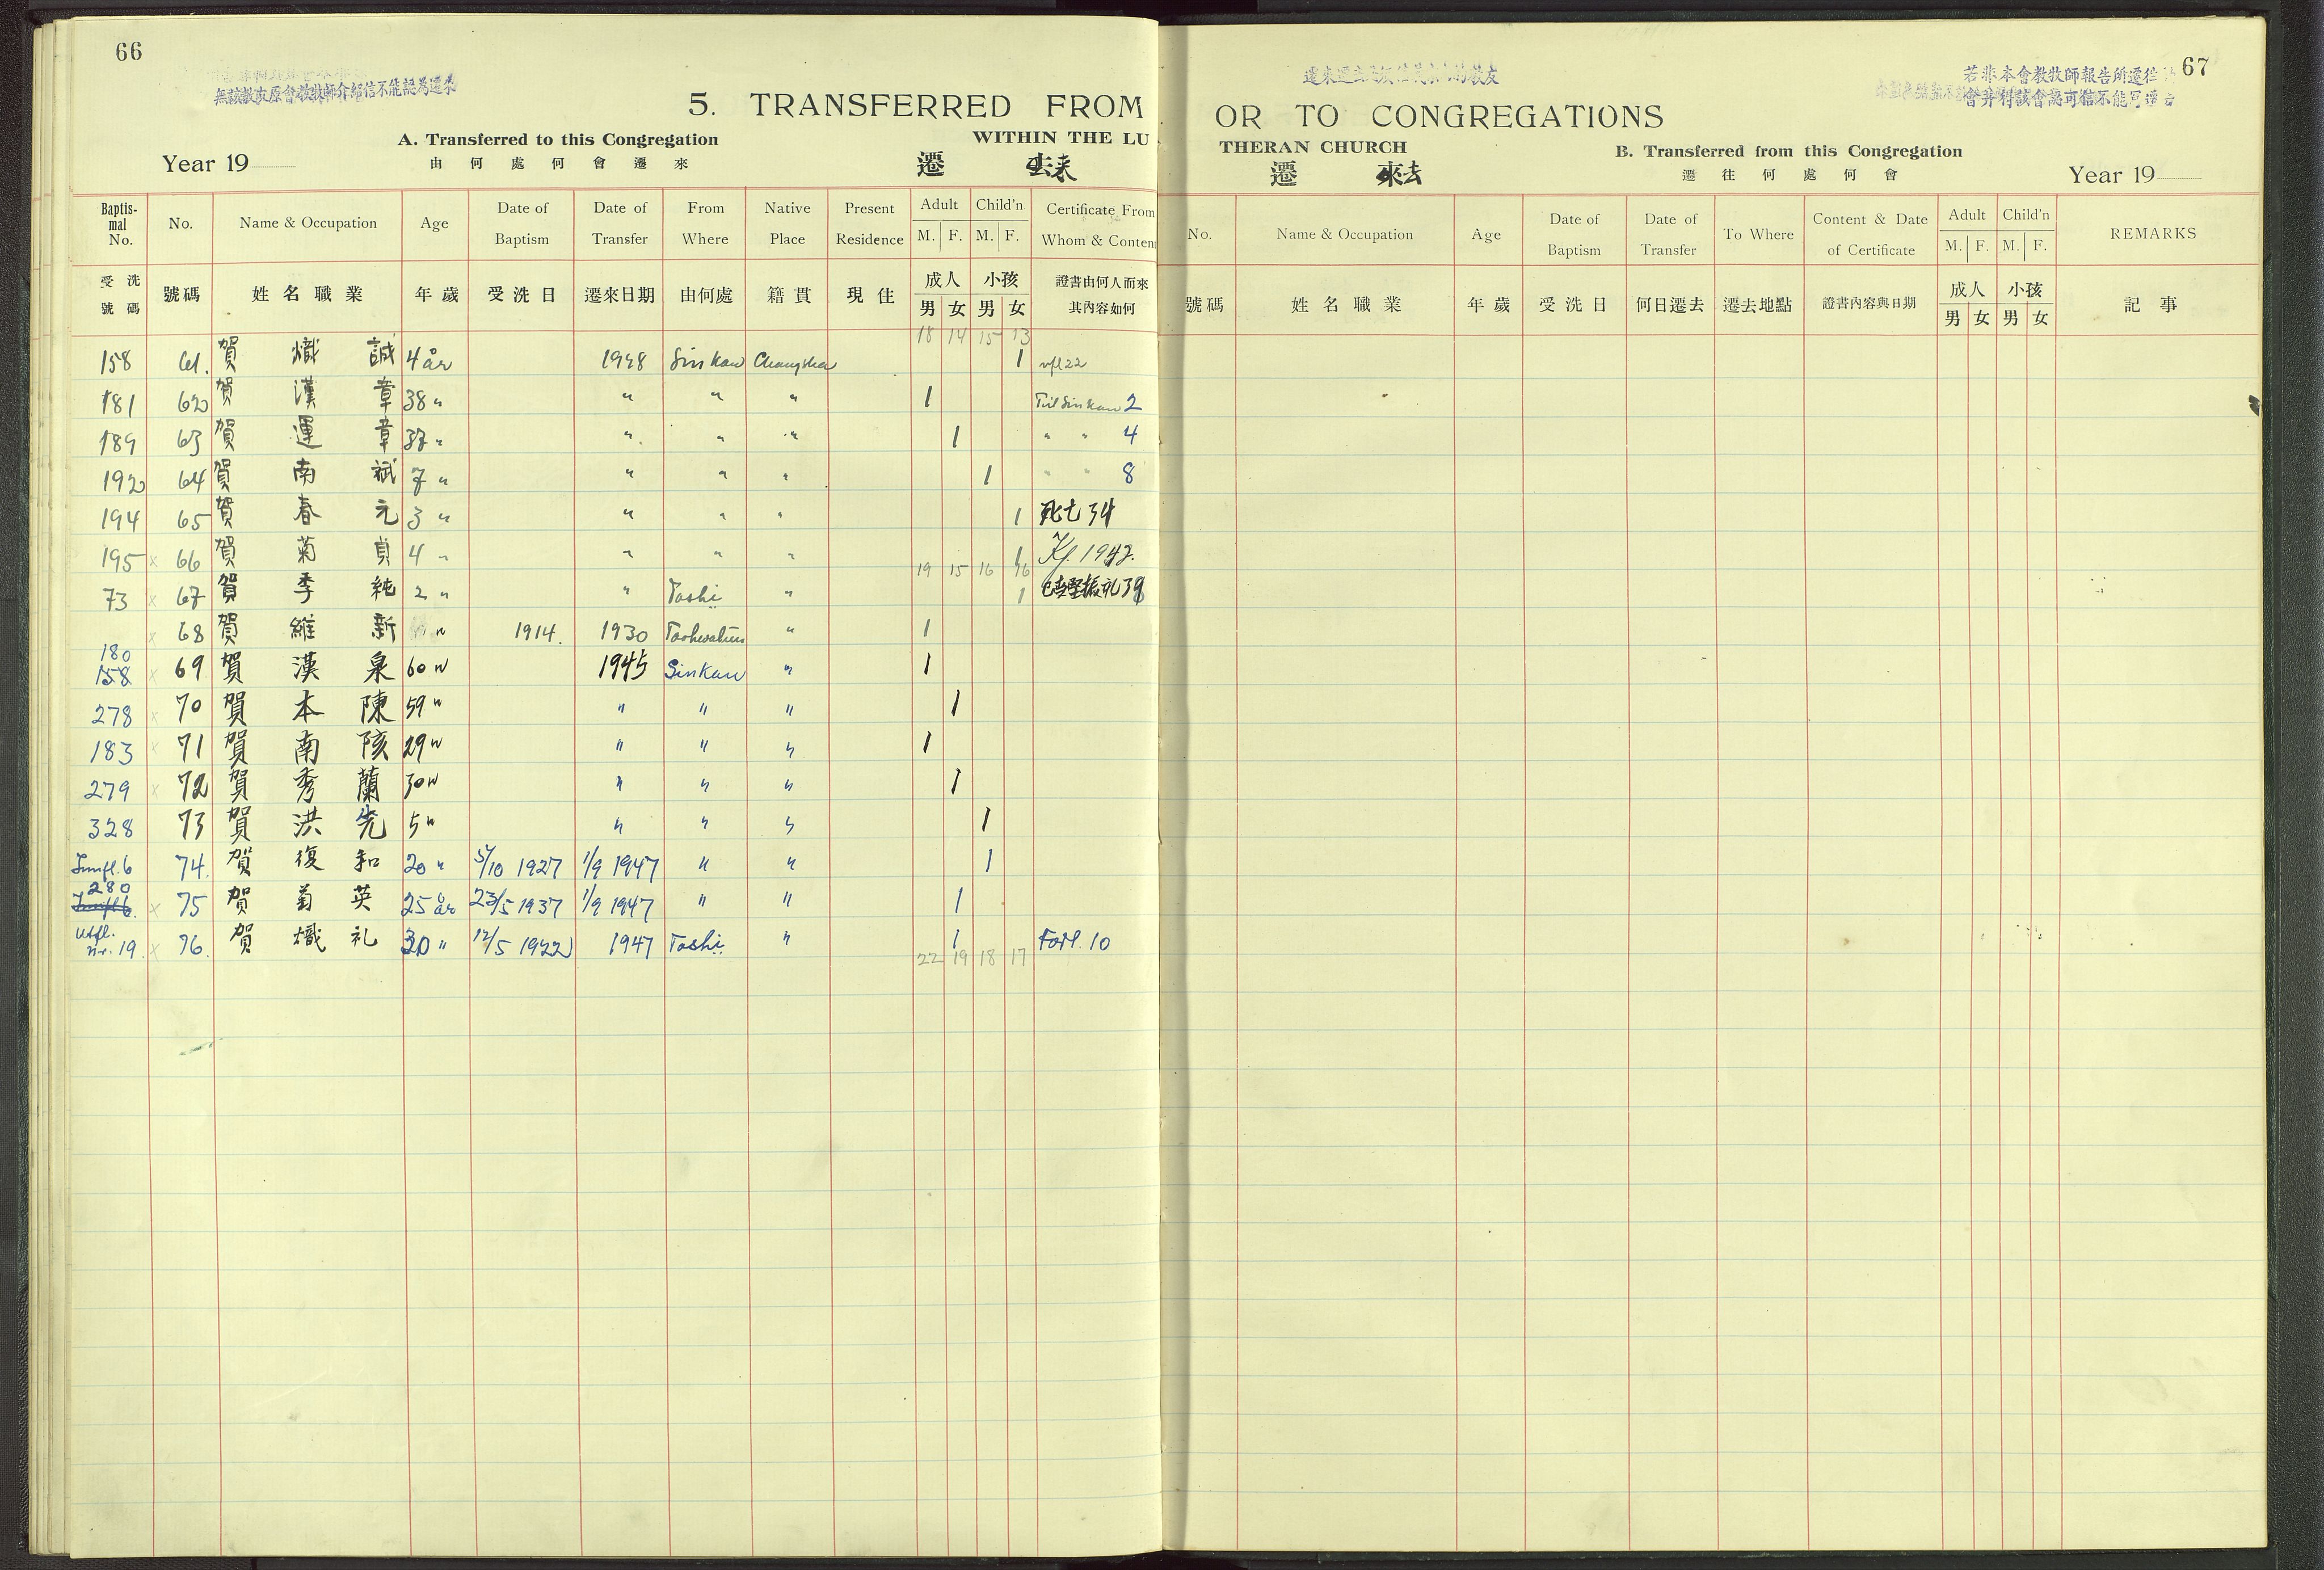 66
無該教友原會教牧師介紹信不能認為遷來
5. TRANSFERRED FROM
A. Transferred to this Congregation
WITHIN THE LU
Year 19
由何處何會遷來
遷 去来
Baptis-mal No. No. Name & Occupation Age Date of Baptism Date of Transfer From Where Native Place Present Residence Adult M. F. Child'n M. F. Certificate From Whom & Conten
受洗號碼 號碼 姓名職業 年歲 受洗日 遷來日期 由何處 籍貫 現住 成人 男 女 小孩 男 女 證書由何人而來其內容如何
18 14 15 13
158 61. 賀熾誠 4 år 1928 Sinkaw Changsha 1
181 62 賀漢章 38 " " " " 1 Til Sinkaw 2
189 63 賀運章 33 " " " " 1 " " 4
192 64 賀南斌 7 " " " " 1 " " 8
194 65 賀春元 3 " " " " 1 死亡 34
195 x 66 賀菊貞 4 " " " " 1 Kf. 1942.
19 15 16 16
73 x 67 賀季純 2 " " Toshi " 1
x 68 賀維新 " 1914. 1930 " 1
180
158 x 69 賀漢泉 60 " 1945 Sinkaw " 1
278 x 70 賀本陳 59 " " " " 1
183 x 71 賀南陔 29 " " " " 1
279 x 72 賀秀蘭 30 " " " " 1
328 73 賀洪先 5 " " " " 1
74. 賀復和 20 " 5/10 1927 1/9 1947 " " 1
280
x 75 賀菊英 25 år 23/5 1937 1/9 1947 " " 1
Utfl.
nr. 19. x 76. 賀熾礼 30 " 12/5 1922 1947 Toshi " 1 Forl. 10
22 19 18 17
67
若非本會教牧師報告所遷往
會并得該會認可信不能寫遷去
OR TO CONGREGATIONS
THERAN CHURCH
B. Transferred from this Congregation
遷 來去
遷往何處何會
Year 19
No. Name & Occupation Age Date of Baptism Date of Transfer To Where Content & Date of Certificate Adult M. F. Child'n M. F. REMARKS
號碼 姓名職業 年歲 受洗日 何日遷去 遷去地點 證書內容與日期 成人 男 女 小孩 男 女 記事